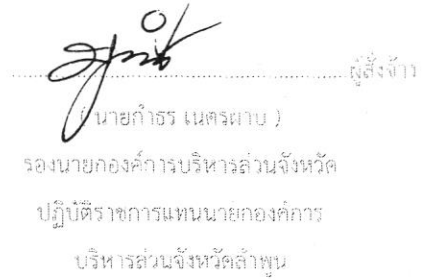 ผู้สั่งจ้าง
( นายกำธร เนตรผาบ )
รองนายกองค์การบริหารส่วนจังหวัด
ปฏิบัติราชการแทนนายกองค์การ
บริหารส่วนจังหวัดลำพูน